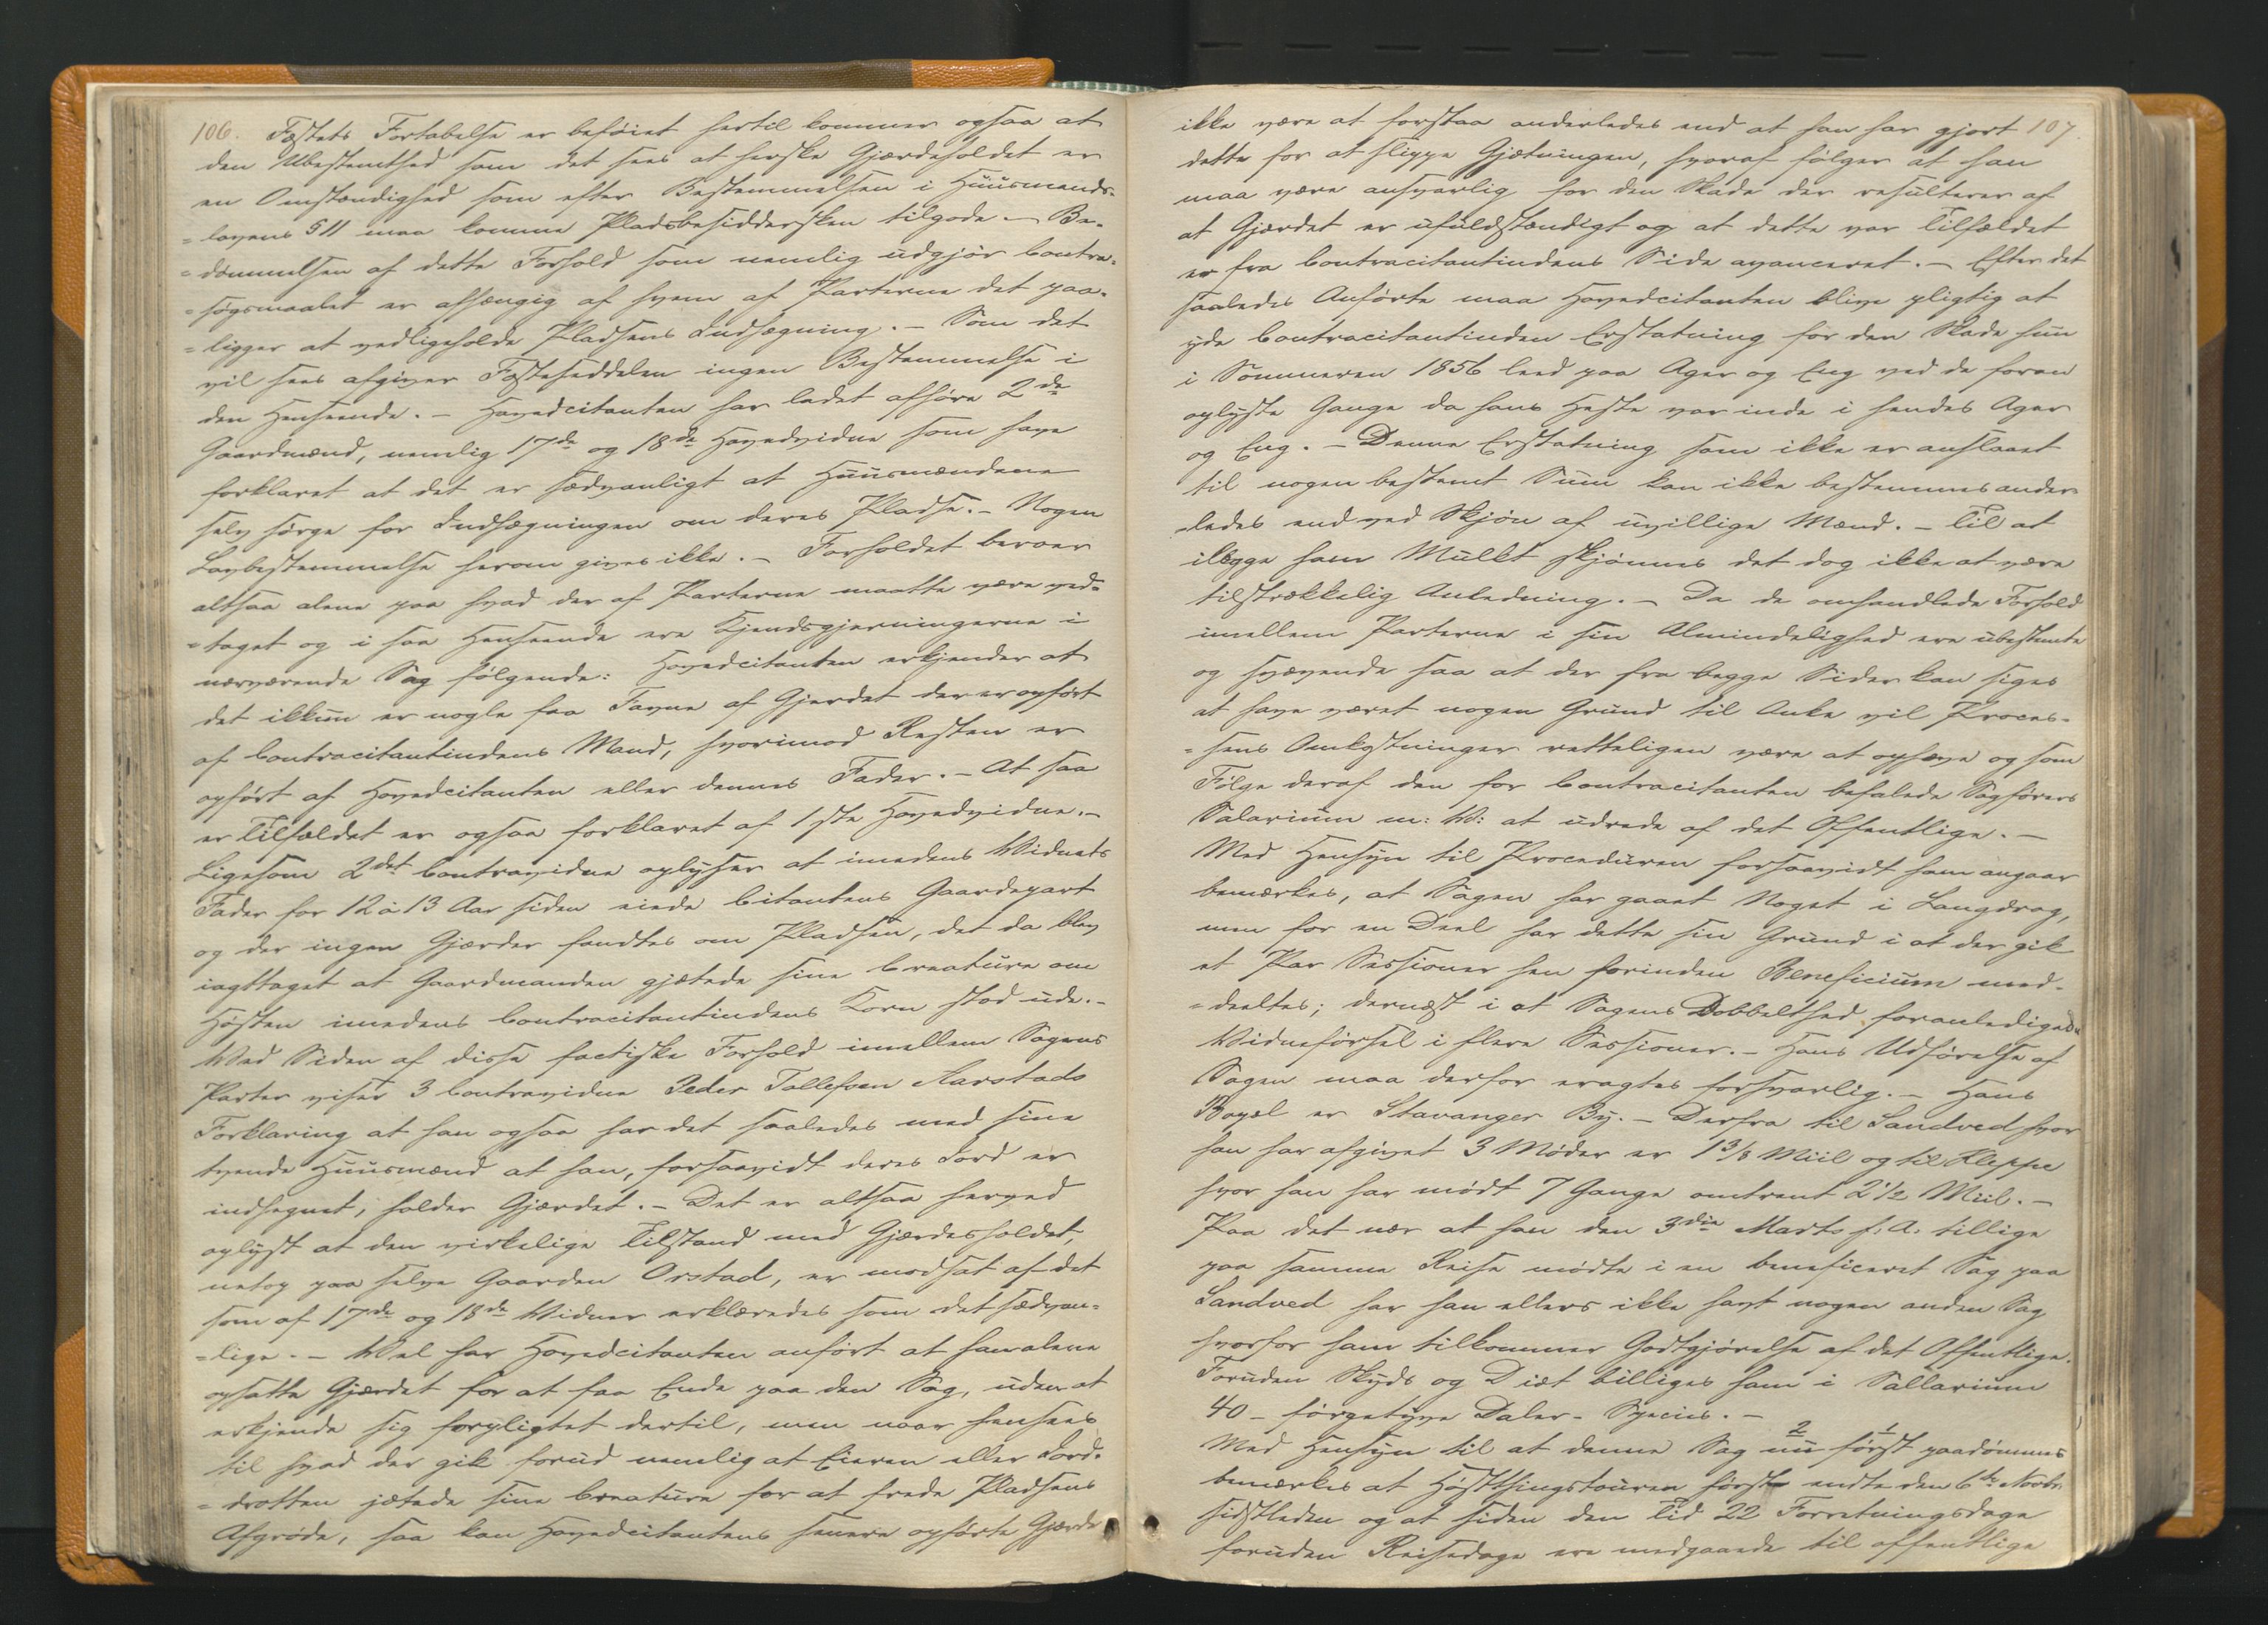 106.
Fæstets Fortabelse er beføiet hertil kommer ogsaa at
den Ubestemthed som det sees at herske Gjærdeholdet er
en Omstændighed som efter Bestemmelsen i Huusmands-
=lovens § 11 maa komme Pladsbesiddersken tilgode. – Be-
=dømmelsen af dette Forhold som nemlig udgjør Contra-
=søgsmaalet er afhængig af hvem af Parterne det paa-
=ligger at vedligeholde Pladsens Indhægning. – Som det
vil sees afgiver Fæsteseddelen ingen Bestemmelse i
den Henseende. – Hovedcitanten har ladet afhøre 2de
Gaardmænd, nemlig 17de og 18de Hovedvidne som have
forklaret at det er sædvanligt at Huusmændene
selv sørge for Indhægningen om deres Pladse. – Nogen
Lovbestemmelse herom gives ikke. – Forholdet beroer
altsaa alene paa hvad der af Parterne maatte være ved-
=taget og i saa Henseende ere Kjendsgjerningerne i
nærværende Sag følgende: Hovedcitanten erkjender at
det ikkun er nogle faa Favne af Gjerdet der er opført
af Contracitantindens Mand, hvorimod Resten er
opført af Hovedcitanten eller dennes Fader. – At saa
er Tilfældet er ogsaa forklaret af 1ste Hovedvidne. –
Ligesom 2det Contravidne oplyser at imedens Vidnets
Fader for 12 à 13 Aar siden eiede Citantens Gaardepart
og der ingen Gjærder fandtes om Pladsen, det da blev
iagttaget at Gaardmanden gjætede sine Creature om
Høsten imedens Contracitantindens Korn stod ude. –
Ved Siden af disse factiske Forhold imellem Sagens
Parter viser 3 Contravidne Peder Tollefsen Aarstads
Forklaring at han ogsaa har det saaledes med sine
tvende Huusmænd at han, forsaavidt deres Jord er
indhegnet, holder Gjærdet. – Det er altsaa herved
oplyst at den virkelige Tilstand med Gjærdesholdet,
netop paa selve Gaarden Orstad, er modsat af det
som af 17de og 18de Vidner erklæredes som det sædvan-
=lige. – Vel har Hovedcitanten anført at han alene
opsatte Gjærdet for at faa Ende paa den Sag, uden at
erkjende sig forpligtet dertil, men naar hensees
til hvad der gik forud nemlig at Eieren eller Jord-
=drotten jætede sine Creature for at frede Pladsens
Afgrøde, saa kan Hovedcitantens senere opførte Gjærde
107.
ikke være at forstaa anderledes end at han har gjort
dette for at slippe Gjætningen, hvoraf følger at han
maa være ansvarlig for den Skade der resulterer af
at Gjærdet er ufuldstændigt og at dette var Tilfældet
er fra Contracitantindens Side avanceret. – Efter det
saaledes Anførte maa Hovedcitanten blive pligtig at
yde Contracitantinden Erstatning for den Skade hun
i Sommeren 1856 leed paa Ager og Eng ved de foran
oplyste Gange da hans Heste var inde i hendes Ager
og Eng. – Denne Erstatning som ikke er anslaaet
til nogen bestemt Sum kan ikke bestemmes ander-
ledes end ved Skjøn af uvillige Mænd. – Til at
ilægge ham Mulkt skjønnes det dog ikke at være
tilstrækkelig Anledning. – Da de omhandlede Forhold
imellem Parterne i sin Almindelighed ere ubestemte
og svævende saa at der fra begge Sider kan siges
at have været nogen Grund til Anke vil Proces-
=sens Omkostninger retteligen være at ophæve og som
Følge deraf den for Contracitanten befalede Sagførers
Salarium m: V: at udrede af det Offentlige. –
Med Hensyn til Proceduren forsaavidt ham angaar
bemærkes, at Sagen har gaaet Noget i Langdrag,
men for en Deel har dette sin Grund i at der gik
et Par Sessioner hen forinden Beneficium med-
=deeltes; dernæst i at Sagens Dobbelthed foranledigede
Vidneførsel i flere Sessioner. – Hans Udførelse af
Sagen maa derfor eragtes forsvarlig. – Hans
Bopæl er Stavanger By. – Derfra til Sandved hvor
han har afgivet 3 Møder er 1 3/8 Miil og til Kleppe
hvor han har mødt 7 Gange omtrent 2 1/2 Miil. –
Paa det nær at han den 3die Marts f. A. tillige
paa samme Reise mødte i en beneficeret Sag paa
Sandved har han ellers ikke havt nogen anden Sag
hvorfor ham tilkommer Godtgjørelse af det Offentlige.
Foruden Skyds og Diæt billiges ham i Sallarium
40 – førgetyve Daler – Species. –
2 1
Med Hensyn til at denne Sag nu først paadømmes
bemærkes at Høstthingstouren først endte den 6te Novbr.
sidstleden og at siden den Tid 22 Forretningsdage
foruden Reisedage ere medgaaede til offentlige